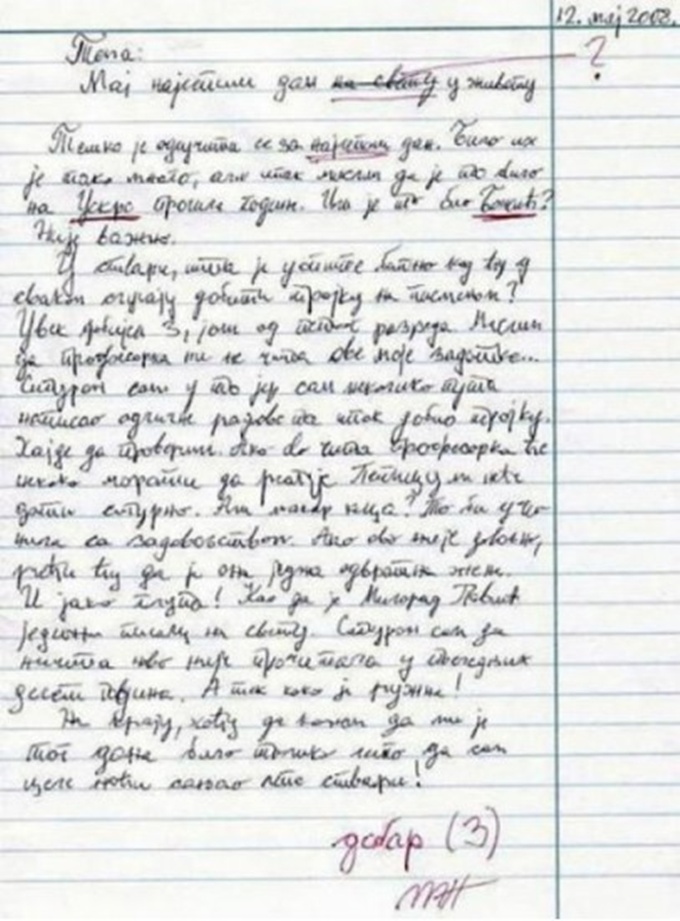 12. мај 2008.
?
Тема:
Мој најлепши дан на свету у животу
Тешко је одлучити се за најлепши дан. Било их
је тако много, али ипак мислим да је то било
на Ускрс прошле године. Или је то био Божић?
Није важно.
У ствари, шта је уопште битно кад ћу од
свакога добити тројку на писменом?
Увек добијем 3, још од петог разреда. Мислим
да професорка ни не чита ове моје задатке...
Сигуран сам у то јер сам неколико пута
написао одличне радове па ипак добио тројку.
Хајде да проверим. Ако ово чита професорка ће
некако морати да реагује. Петицу ми неће
дати сигурно. Али макар кеца? То би учи
нила са задовољством. Ако ово није довољно,
рећи ћу да је она једна одвратна жена.
И јако глупа! Као да је Милорад Павић
једини писац на свету. Сигуран сам да
ништа ново није прочитала у последњих
десет година. А тек како је ружна!
На крају, хоћу да кажем да ми је
тог дана било толико лепо да сам
целе ноћи сањао лепе ствари!
добар (3)